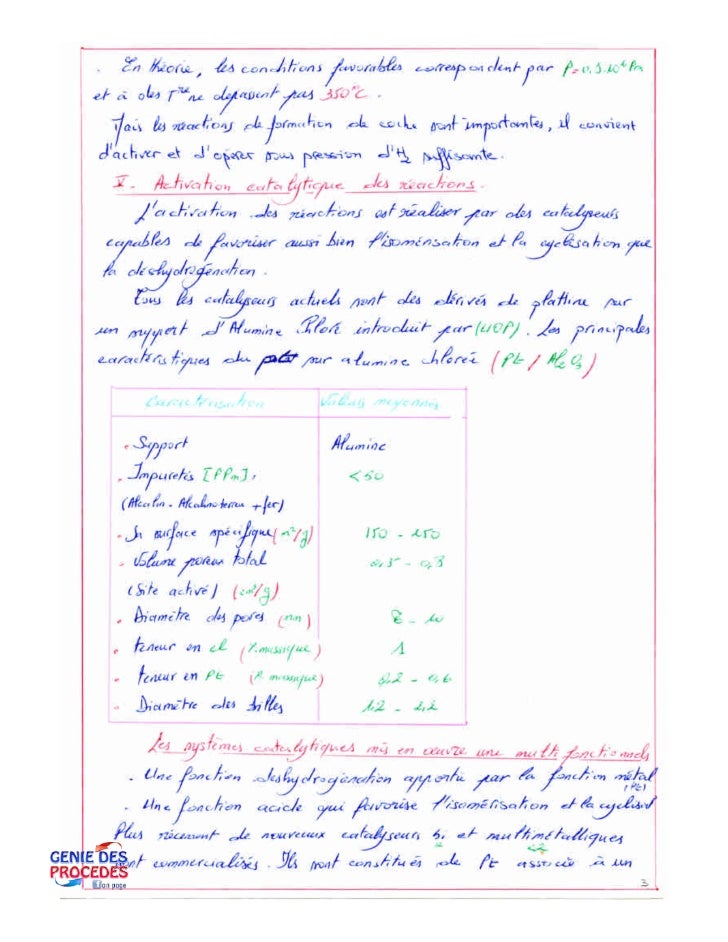 . En théorie, les conditions favorables correspondent par P=0.5.10⁶ Pa
et à des T^re ne depassent pas 350°C.
Mais les réactions de formation de coche sont importantes, il convient
d'activer et d'opérer sous pression d'H₂ suffisante.
V. Activation catalytique des réactions.
L'activation des réactions est réaliser par des catalyseurs
capables de favoriser aussi bien l'isomérisation et la cyclisation que
la déshydrogénation.
Tous les catalyseurs actuels sont des dérivés de plattine sur
un support d'Alumine Chloré introduit par (UOP). Les principales
caractéristiques du sur alumine chlorée (Pt / Al₂O₃)
Caractérisation Valeurs moyennes
. Support Alumine
. Impuretés [PPm]: <50
(Alcalin - Alcalinoterreux + fer)
. Sa surface spécifique (m²/g) 150 - 250
. Volume poreux total 0,5 - 0,3
(Site activé) (cm³/g)
. Diamètre des pores (nm) 8 - 10
. teneur en cl (% massique) 1
. teneur en Pt (% massique) 0,2 - 0,6
. Diamètre des billes 1,2 - 2,2
Les systèmes catalytiques mis en œuvre une multi fonctionnels
. Une fonction deshydrogénation apportée par la fonction métal
(Pt)
. Une fonction acide qui favorise l'isomérisation et la cyclisat
Plus récement de nouveaux catalyseurs bi et multimétalliques
sont commercialisés. Ils sont constitués de Pt associé à un
GENIE DES
PROCEDES
fan page
3